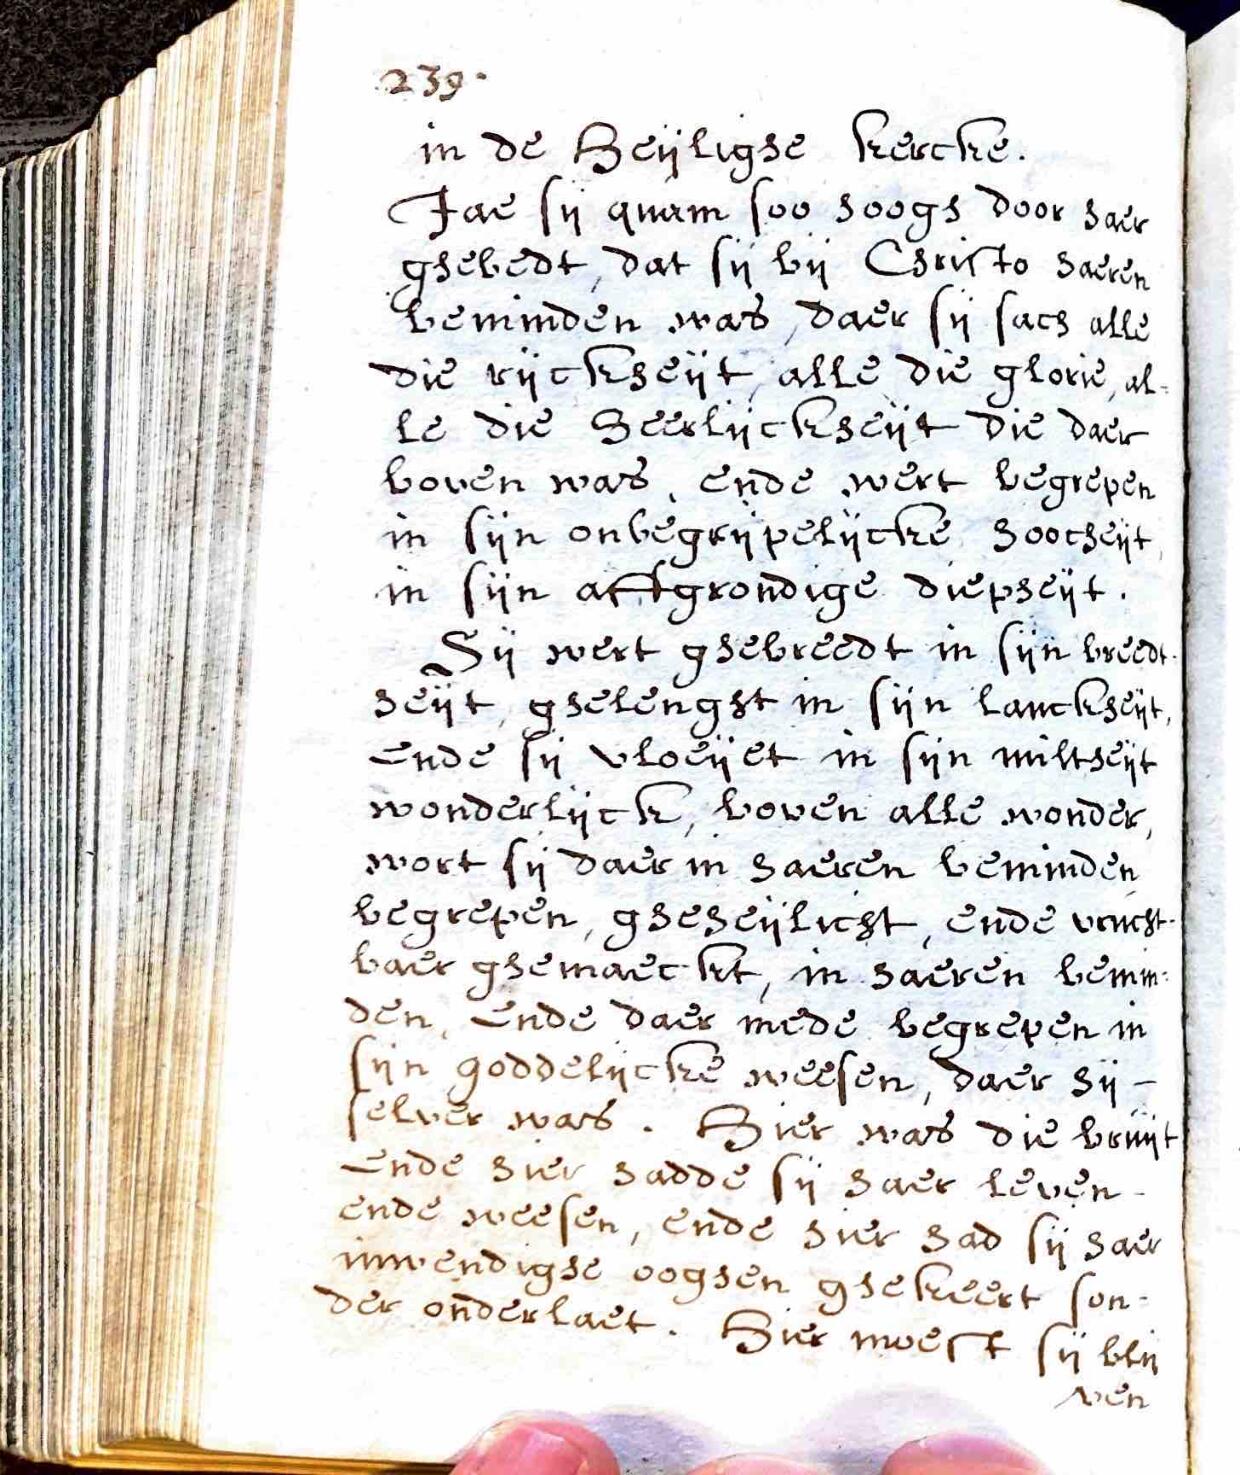 239.
in de Heijlighe kercke.
Jae sij quam soo hoogh door haer
ghebedt, dat sij bij Christo haeren
beminden was, daer sij sach alle
die rijckheijt, alle die glorie, al-
le die Heerlijckheijt die daer
boven was, ende wert begrepen
in sijn onbegrijpelijcke hoocheijt,
in sijn affgrondige diepheijt.
Sij wert ghebreedt in sijn breedt-
heijt, ghelenght in sijn lanckheijt,
Ende sij vloeijet in sijn miltheijt
wonderlijck, boven alle wonder,
wort sij daer in haeren beminden
begrepen, gheheijlicht, ende vrucht-
baer ghemaeckt, in haeren bemin-
den, Ende daer mede begrepen in
sijn goddelijcke weesen, daer hij -
selver was. Hier was die bruijt
Ende hier hadde sij haer leven -
ende weesen, ende hier had sij haer
inwendighe ooghen ghekeert son-
der onderlaet. Hier moest sij blij
ven